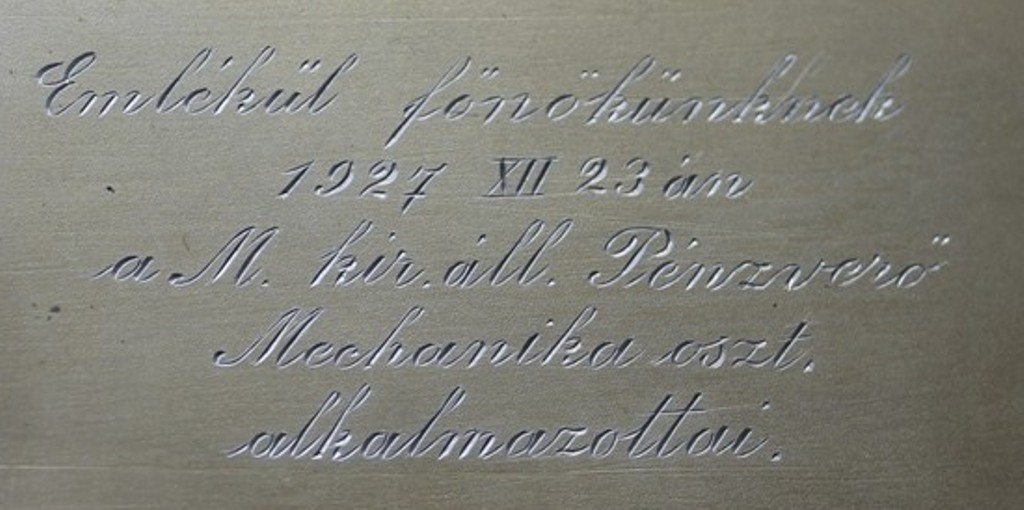 Emlékül főnökünknek
1927 XII 23 án
a M. kir. áll. Pénzverő
Mechanika oszt.
alkalmazottai.